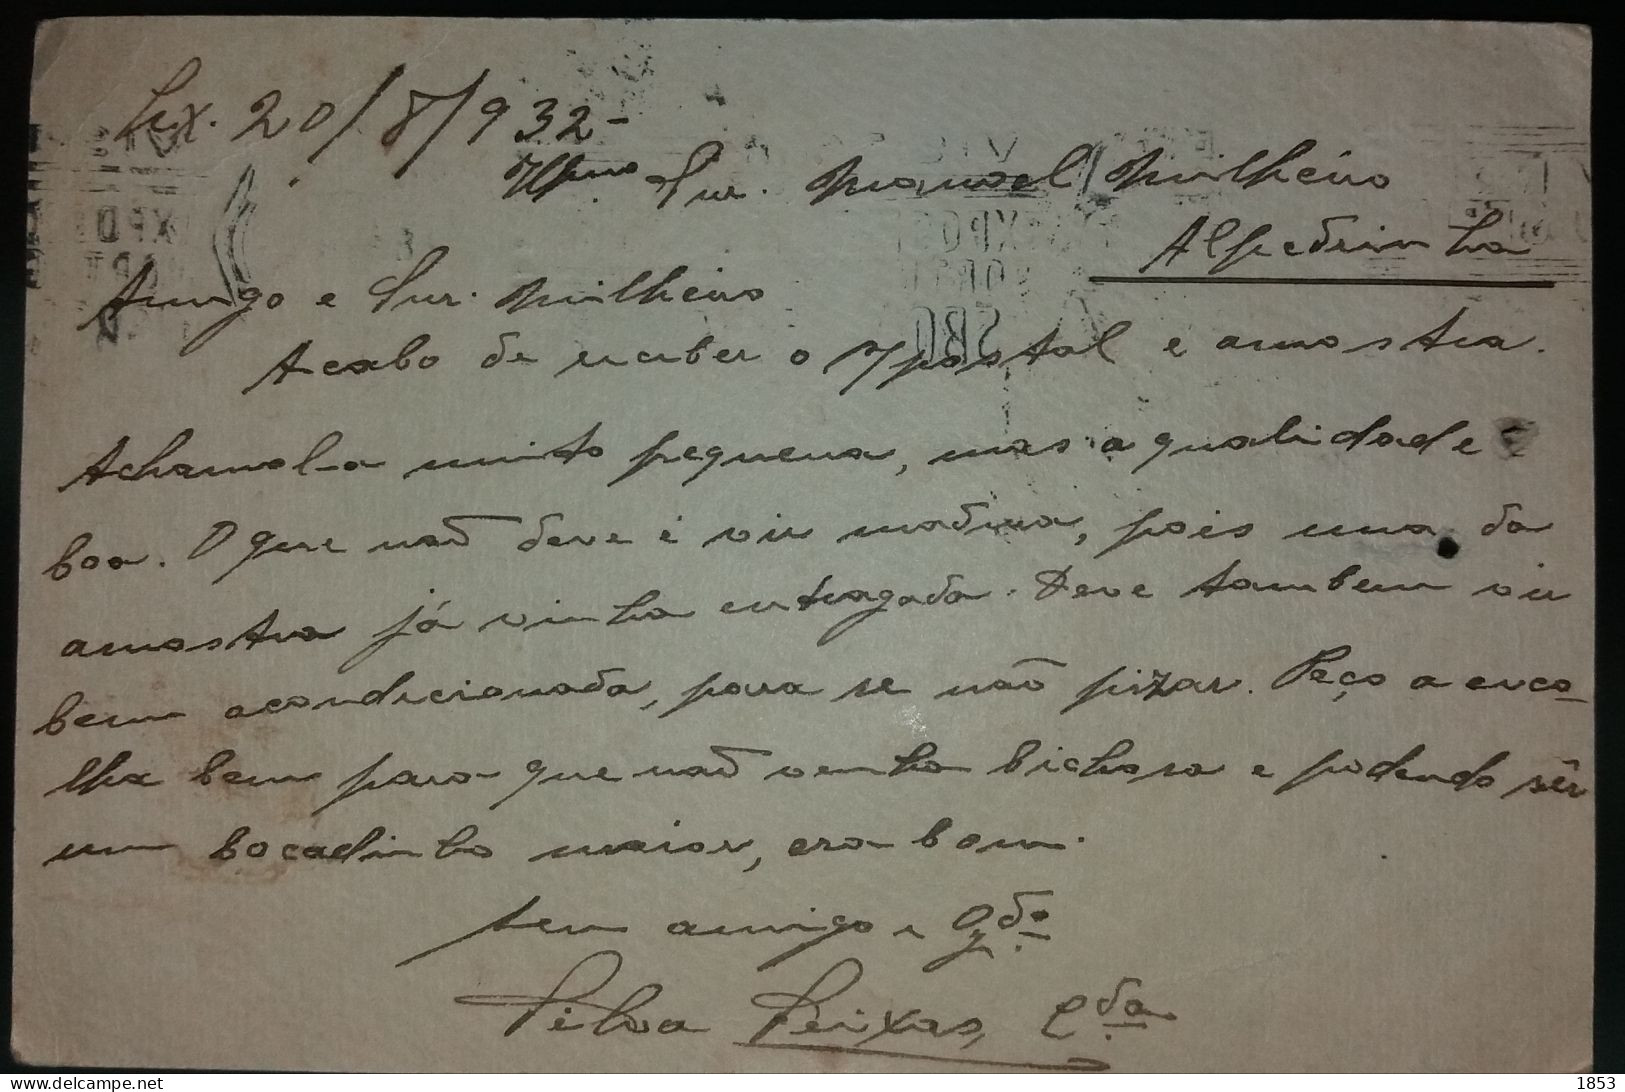 Lix. 20/8/932-
Illmo Snr. Manoel Milheiro
Alpedrinha
Amigo e Snr. Milheiro
Acabo de receber o postal e amostra.
Achamol-a muito pequena, mas a qualidade é
boa. O que não deve é vir madura, pois uma da
amostra já vinha entragada. Deve tambem vir
bem acondicionada, para se não pizar. Peço a esco-
lha bem para que não venha bichosa e podendo sêr
um bocadinho maior, era bom.
Seu amigo e Ogdo
Silva Seixas, Lda
delcampe.net
1853